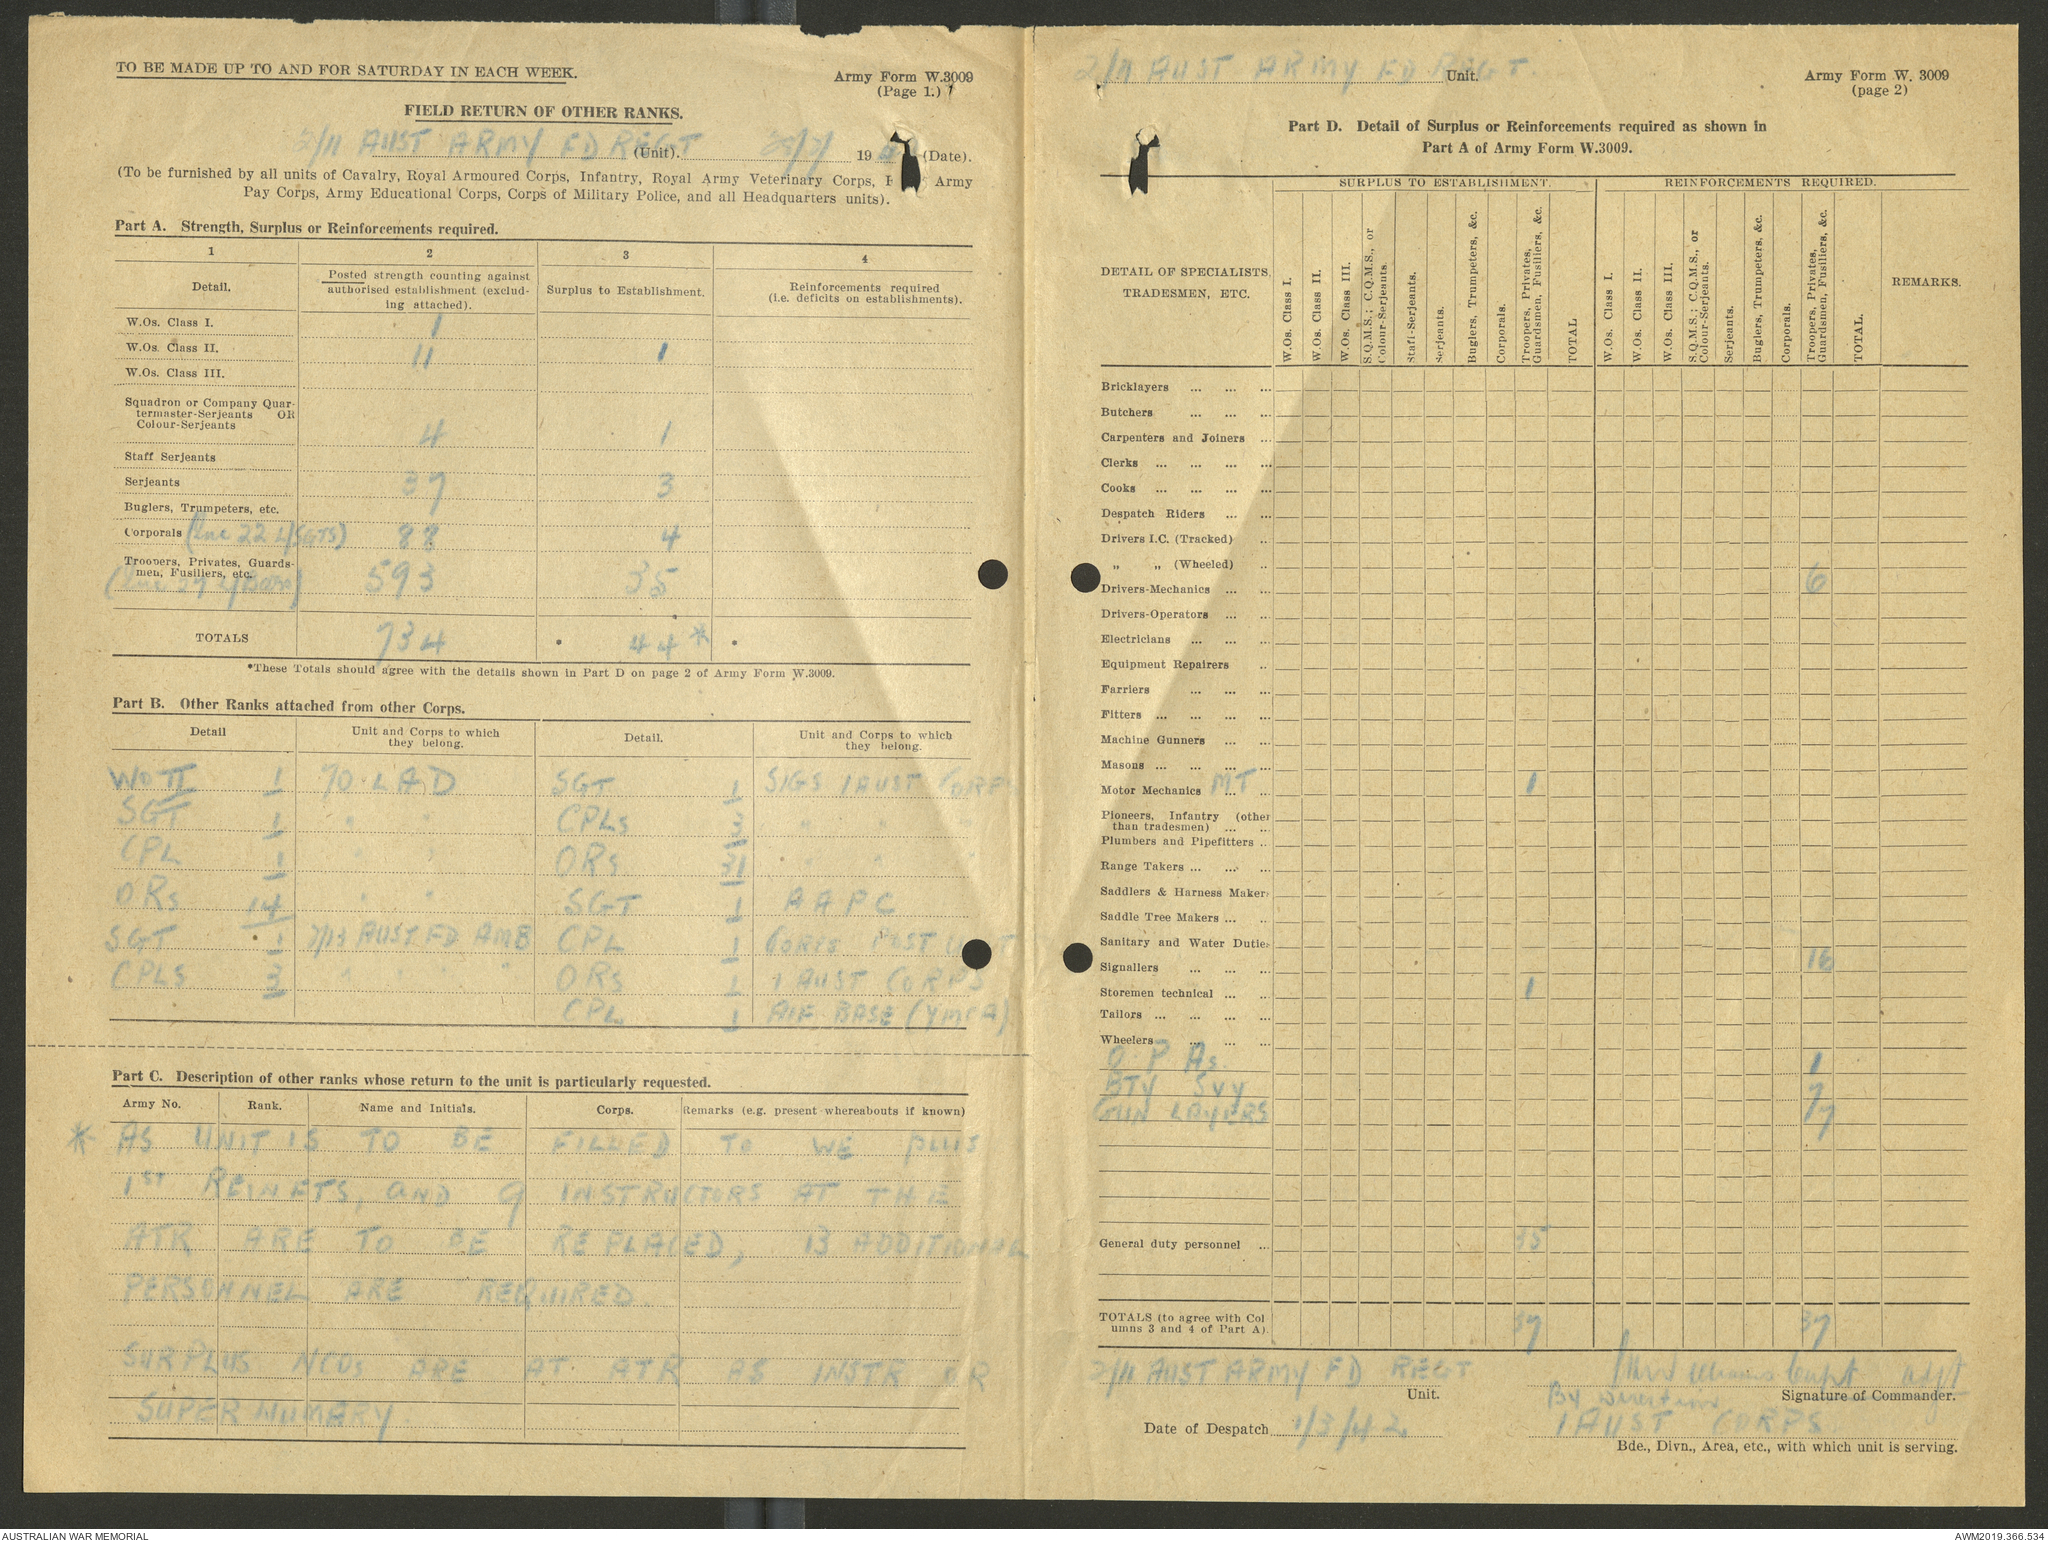 TO BE MADE UP TO AND FOR SATURDAY IN EACH WEEK.
Army Form W.3009
(Page 1.) 1
FIELD RETURN OF OTHER RANKS.
2/11 AUST ARMY FD REGT (Unit). 19 (Date).
(To be furnished by all units of Cavalry, Royal Armoured Corps, Infantry, Royal Army Veterinary Corps, Army
Pay Corps, Army Educational Corps, Corps of Military Police, and all Headquarters units).
Part A. Strength, Surplus or Reinforcements required.
1 2 3 4
Detail. Posted strength counting against authorised establishment (excluding attached). Surplus to Establishment. Reinforcements required (i.e. deficits on establishments).
W.Os. Class I. 1
W.Os. Class II. 11 1
W.Os. Class III.
Squadron or Company Quar-
termaster-Serjeants OR
Colour-Serjeants 4 1
Staff Serjeants
Serjeants 37 3
Buglers, Trumpeters, etc.
Corporals (Inc 22 L/SGTS) 88 4
Troopers, Privates, Guards-
men, Fusiliers, etc. 593 35
TOTALS 734 44*
*These Totals should agree with the details shown in Part D on page 2 of Army Form W.3009.
Part B. Other Ranks attached from other Corps.
Detail Unit and Corps to which they belong. Detail. Unit and Corps to which they belong.
WO II 1 70 LAD SGT 1 SIGS 1 AUST CORPS
SGT 1 " " CPLs 3 " " "
CPL 1 " " ORs 31 " " "
ORs 14 " " SGT 1 AAPC
SGT 1 2/13 AUST FD AMB CPL 1 CORPS POST UNIT
CPLS 3 " " " " ORs 1 1 AUST CORPS
CPL 1 AIF BASE (YMCA)
Part C. Description of other ranks whose return to the unit is particularly requested.
Army No. Rank. Name and Initials. Corps. Remarks (e.g. present whereabouts if known)
* AS UNIT IS TO BE FILLED TO WE PLUS
1ST REINFTS, AND 9 INSTRUCTORS AT THE
ATR ARE TO BE REPLACED, 13 ADDITIONAL
PERSONNEL ARE REQUIRED.
SURPLUS NCOs ARE AT ATR AS INSTR OR
SUPER NUMARY.
2/11 AUST ARMY FD REGT. Unit.
Army Form W. 3009
(page 2)
Part D. Detail of Surplus or Reinforcements required as shown in
Part A of Army Form W.3009.
SURPLUS TO ESTABLISHMENT. REINFORCEMENTS REQUIRED.
DETAIL OF SPECIALISTS, TRADESMEN, ETC.
W.Os. Class I.
W.Os. Class II.
W.Os. Class III.
S.Q.M.S.; C.Q.M.S., or Colour-Serjeants
Staff-Serjeants.
Serjeants.
Buglers, Trumpeters, &c.
Corporals.
Troopers, Privates, Guardsmen, Fusiliers, &c.
TOTAL
W.Os. Class I.
W.Os. Class II.
W.Os. Class III.
S.Q.M.S.; C.Q.M.S., or Colour-Serjeants.
Serjeants.
Buglers, Trumpeters, &c.
Corporals.
Troopers, Privates, Guardsmen, Fusiliers, &c.
TOTAL.
REMARKS.
Bricklayers ... ... ...
Butchers ... ... ...
Carpenters and Joiners ...
Clerks ... ... ... ...
Cooks ... ... ... ...
Despatch Riders ... ...
Drivers I.C. (Tracked) ..
" " (Wheeled) ..
Drivers-Mechanics ... ... 6
Drivers-Operators ... ..
Electricians ... ... ...
Equipment Repairers ..
Farriers ... ... ...
Fitters ... ... ... ...
Machine Gunners ... ...
Masons ... ... ... ...
Motor Mechanics MT ... .. 1
Pioneers, Infantry (other
than tradesmen) ... ..
Plumbers and Pipefitters ..
Range Takers ... ... ..
Saddlers & Harness Maker
Saddle Tree Makers ... ..
Sanitary and Water Dutie
Signallers ... ... ... 16
Storemen technical ... .. 1
Tailors ... ... ... ...
Wheelers ... ... ...
O.P As. 1
BTY SVY 7
GUN LAYERS 7
General duty personnel ... 35
TOTALS (to agree with Col
umns 3 and 4 of Part A). 37 37
2/11 AUST ARMY FD REGT
Unit.
Capt Adjt
Signature of Commander.
By Direction
Date of Despatch 1/3/42
1 AUST CORPS.
Bde., Divn., Area, etc., with which unit is serving.
AUSTRALIAN WAR MEMORIAL
AWM2019.366.534